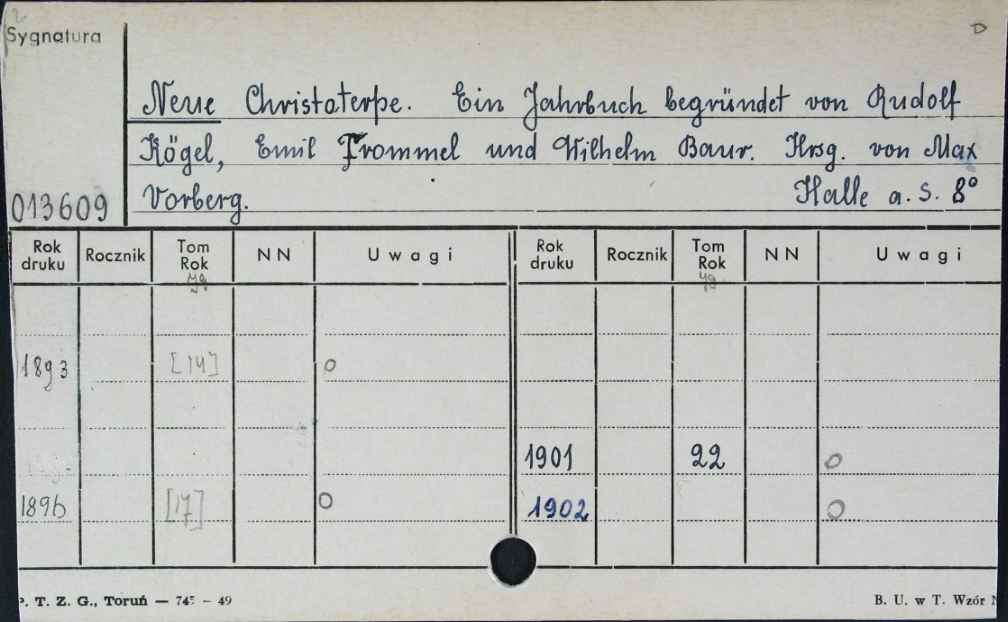 Sygnatura D
Neue Christoterpe. Ein Jahrbuch begründet von Rudolf
Kögel, Emil Frommel und Wilhelm Baur. Hrsg. von Max
013609 Vorberg. Halle a. S. 8°
Rok druku Rocznik Tom Rok Jg NN Uwagi Rok druku Rocznik Tom Rok Jg NN Uwagi
1893 [14] o
1901 22 o
1896 [17] o 1902 o
P. T. Z. G., Toruń — 745 – 49 B. U. w T. Wzór